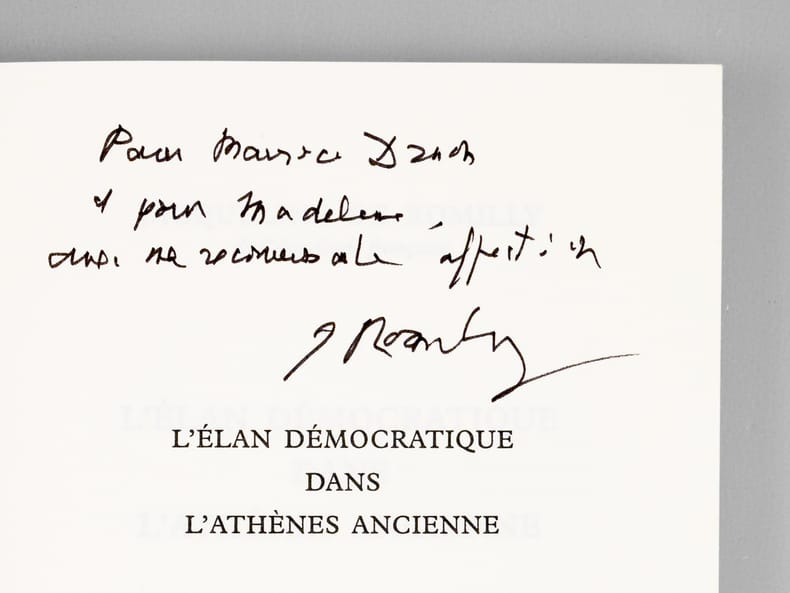 Pour Maurice Druon
et pour Madeleine,
avec ma affection
J Romilly
L'ÉLAN DÉMOCRATIQUE
DANS
L'ATHÈNES ANCIENNE